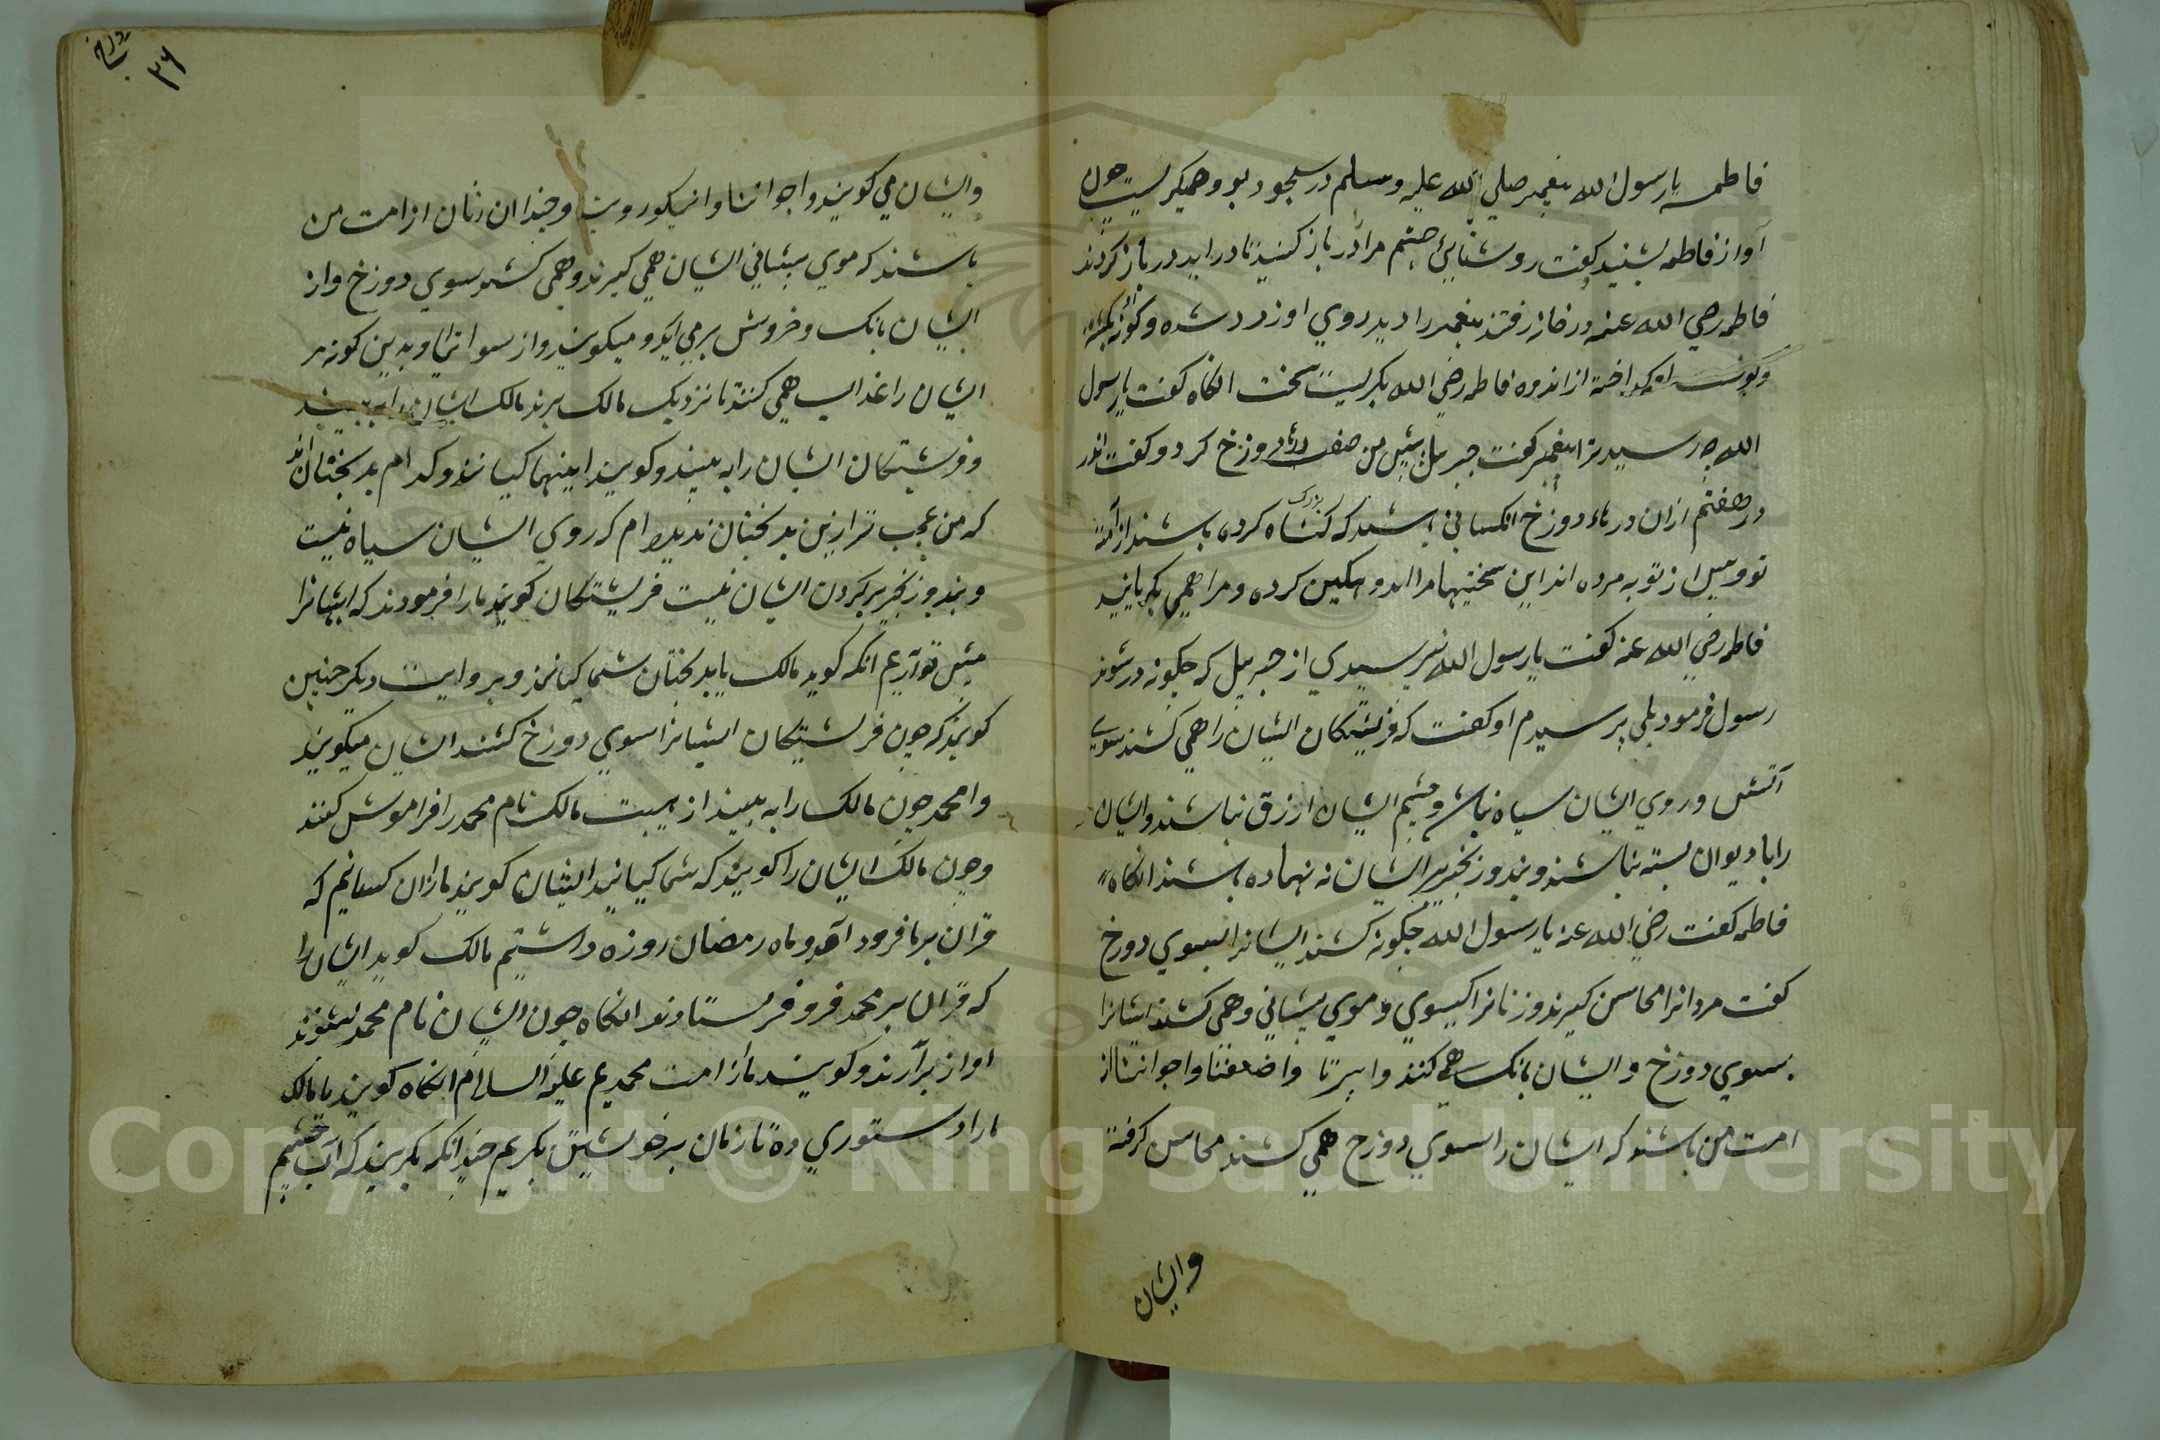 فاطمه یا رسول الله پیغمبر صلي الله علیه وسلم در سجود بود وهمیکریست چون
آواز فاطمه بشنید کفت روشنایئ چشم مرا در باز کنید تا در اید در باز کردند
فاطمه رضي الله عنه در خانه رفتند پیغمبر را دید روي او زرد شده و
از اندوه فاطمه رضي الله بکریست سخت انکاه کفت یا رسول
الله چه رسید ترا پیغمبر کفت جبرئیل پیش من صفت درهاء دوزخ کرد و کفت اندر
در هفتم ازان درهاء دوزخ انکساني باشند که کناه بزرك کرده باشند از امت
تو وپیش از توبه مرده اند این سختیها مرا اندوهکین کرده و مرا همي بکریاند
فاطمه رضي الله عنه کفت یا رسول الله نپرسیدي از جبرییل که چکونه در شوند
رسول فرمود بلي پرسیدم او کفت که فریشتکان ایشان را همي کشند سوي
آتش وروي ایشان سیاه نباشد وچشم ایشان ازرق نباشند وایشان
را با دیوان بسته نباشند وبند وزنجیر بر ایشان نه نهاده باشند انکاه
فاطمه کفت رضي الله عنه یا رسول الله چکونه کشند ایشانرا بسوي دوزخ
کفت مردانرا محاسن کیرند وزنانرا کیسوي وموي پیشاني وهمي کشند ایشانرا
بسوي دوزخ وایشان بانک همي کنند وا پیرنا واضعفنا واجواننا از
امت من باشند که ایشان را سوي دوزخ همي کشند محاسن کرفته
وایشان
٣٦
وایشان مي کویند واجواننا وانیکورویت وچندان زنان از امت من
باشند که موي پیشاني ایشان همي کیرند وهمي کشند سوي دوزخ واز
ایشان بانک وخروش برمي اید ومیکویند واز سواتنا وبدین کونه مر
ایشان را عذاب همي کنند تا نزدیک مالک برند مالک ایشان را به بیند
وفریشتکان ایشان را به بیند وکویند اینها کیانند وکدام بدبختان اند
که من عجب تر ازین بدبختان ندیده ام که روي ایشان سیاه نیست
وبند وزنجیر بر کردن ایشان نیست فریشتکان کویند ما را فرمودند که ایشانرا
پیش تو آریم انکه کوید مالک یا بدبختان شما کیانند وبروایت دیکر چنین
کویند که چون فریشتکان ایشانرا سوي دوزخ کشند ایشان میکویند
وامحمد چون مالک را به بیند از هیبت مالک نام محمد را فراموش کنند
وچون مالک ایشان را کویند که شما کیانید ایشان کویند ما ازان کسانیم که
قران بر ما فرود آمد وماه رمضان روزه داشتیم مالک کوید ایشان را
که قران بر محمد فرو فرستادند انکاه چون ایشان نام محمد بشنوند
اواز برآرند وکویند ما از امت محمدیم علیه السلام انکاه کویند یا مالک
ما را دستوري ده تا زمان بر خویشتن بکریم چندانکه بکریند که اب چشم
Copyright © King Saud University